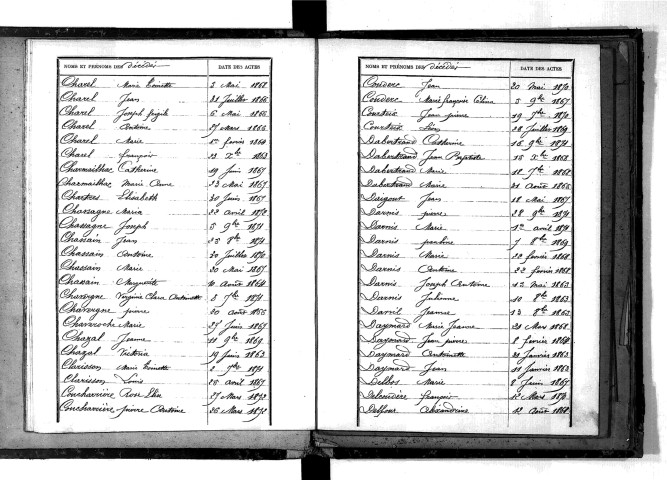 NOMS ET PRÉNOMS DES Décédés DATE DES ACTES
Charel Marie Toinette 3 Mai 1868
Charel Jean 31 Juillet 1866
Charel Joseph 6 Mai 1866
Charel Antoine 27 Mars 1866
Charel Marie 1er février 1864
Charel françois 23 Xbre 1863
Charmailhac Catherine 19 Juin 1867
Charmailhac Marie Anne 23 Mai 1867
Chartres Elisabeth 30 Juin 1867
Chassagne Maria 22 avril 1872
Chassagne Joseph 5 9bre 1871
Chassain Jean 25 8bre 1871
Chassain Antoine 30 Juillet 1870
Chassain Marie 20 Mai 1867
Chassain Marguerite 10 Août 1864
Chauvigne Virginie Clara Antoinette 8 7bre 1871
Chauvigne pierre 20 août 1866
Chavroche Marie 27 Juin 1867
Chazal Jeanne 11 9bre 1869
Chazal Victoria 19 Juin 1863
Clarisson Marie Toinette 2 7bre 1871
Clarisson Louis 28 avril 1867
Concharrière 27 Mars 1872
Concharrière pierre Antoine 26 Mars 1872
NOMS ET PRÉNOMS DES Décédés DATE DES ACTES
Couderc Jean 20 Mai 1870
Couderc Marie françoise Celina 5 9bre 1867
Courteix Jean pierre 19 7bre 1870
Courteix Léon 28 Juillet 1869
Dabertrand Catherine 16 9bre 1871
Dabertrand Jean Baptiste 15 Xbre 1868
Dabertrand Marie 18 7bre 1868
Dabertrand Marie 21 Août 1866
Daigout Jean 18 Mai 1867
Darnis pierre 28 9bre 1871
Darnis Marie 1er avril 1871
Darnis 7 8bre 1869
Darnis Marie 22 février 1868
Darnis Antoine 22 février 1868
Darnis Joseph Antoine 12 Mai 1863
Darnis Julienne 10 8bre 1863
Darnil Jeanne 13 8bre 1863
Daymard Marie Jeanne 21 Mars 1868
Daymard Jean pierre 8 février 1864
Daymard Antoinette 21 Janvier 1863
Daymard Jean 11 Janvier 1863
Delbos Marie 8 Juin 1867
françois 12 Mars 1870
Delfour Alexandrine 12 Août 1868